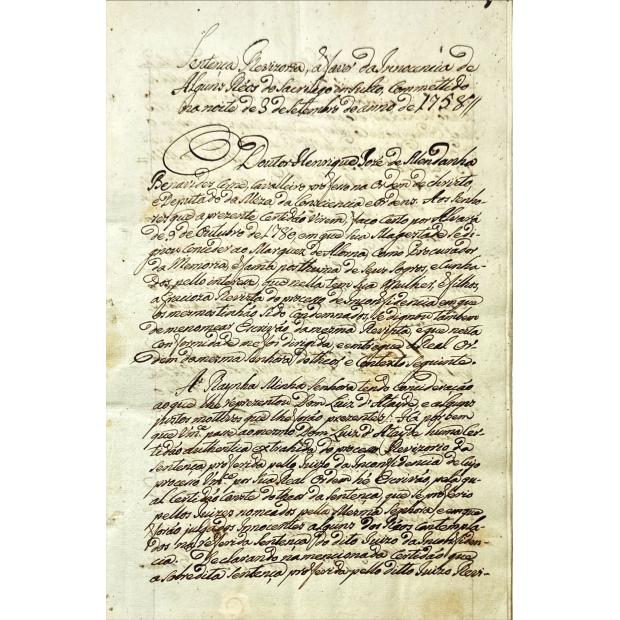 Sentença Revizoria, a favor da Innocencia de
Alguns Réos do Sacrilego insulto, commettido
na noite de 3 de Setembro do anno de 1758 //
O Doutor Henrique José de Mendanha
Benavides Cirne, Cavalleiro professo na Ordem de Christo,
e Deputado da Meza da Consciencia e Ordens. Aos Senho-
res que a prezente Certidão virem, faço Certo por Alvará
de 9 de Outubro de 1780, em que Sua Magestade Se di-
gnou Conceder ao Marquez de Alorna Como Procurador
da Memoria, e fama posthuma de Seus Sogros, e Cunha-
dos, pello interesse que nella tem Sua Mulher, e filhos,
a Gracioza Revista do processo da Inconfidencia em que
os mesmos tinhão Sido Condemnados, Se dignou tambem
de me nomear Escrivão da mesma Revista, e que nesta
Conformidade me foi dirigida e entregue a Real Or-
dem da mesma Senhora do theor, e Contexto Seguinte.
A Raynha Minha Senhora tendo Consideração
ao que lhe reprezentou Dom Luiz d'Ataide, e a alguns
justos mottivos que lhe forão prezentes: Há por bem
que Vm.ce passe ao mesmo Dom Luiz d'Ataide huma Cer-
tidão authentica extrahida do processo Revizorio da
Sentença proferida pello Juizo da Inconfidencia de Cujo
processo Vm.ce por Sua Real Ordem hé Escrivão, pela qu-
al Certidão Conste do theor da Sentença, que Se proferio
pellos Juizes nomeados pella Mesma Senhora, e em que
forão julgados Innocentes alguns dos Réos Contempla-
dos na referida Sentença do dito Juizo da Inconfiden-
cia. Declarando na mencionada Certidão que
a Sobredita Sentença, proferida pello ditto Juizo Revi-